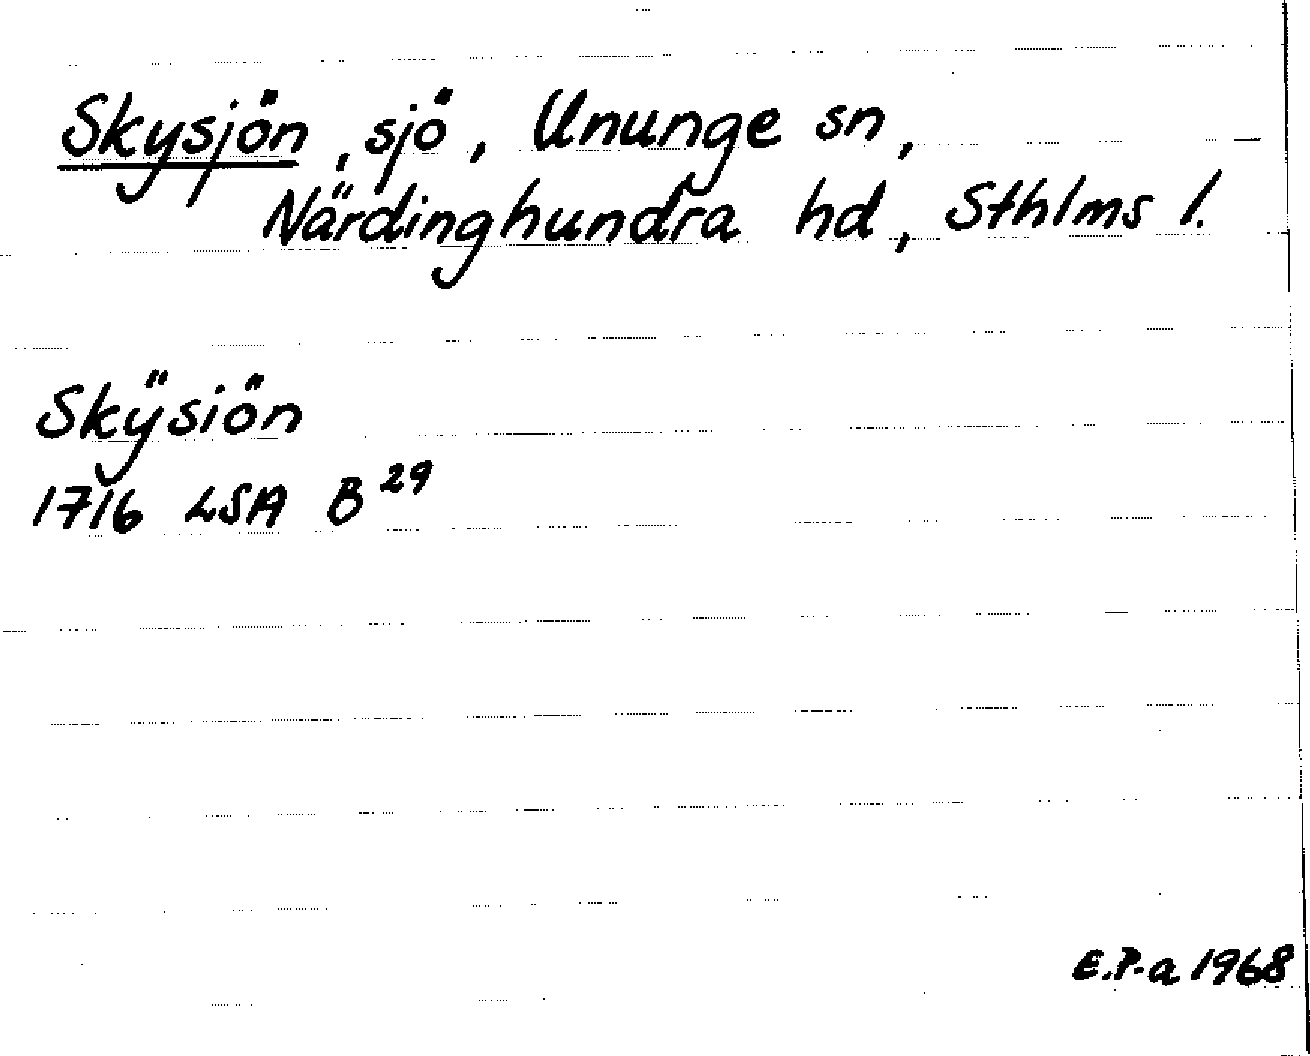 Skysjön, sjö, Ununge sn,
Närdinghundra hd, Sthlms l.
Skÿsiön
1716 LSA B 29
E.P-a 1968